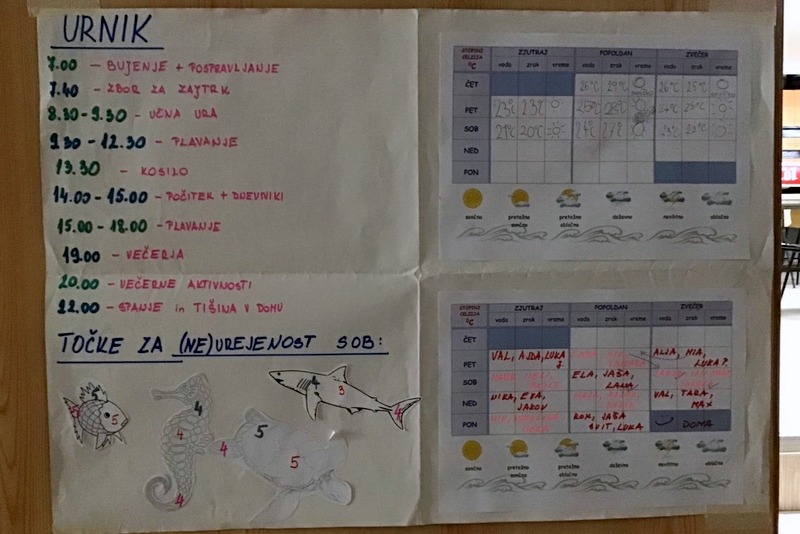 URNIK
7.00 - BUJENJE + POSPRAVLJANJE
7.40 - ZBOR ZA ZAJTRK
8.30 - 9.30 - UČNA URA
9.30 - 12.30 - PLAVANJE
13.30 - KOSILO
14.00 - 15.00 - POČITEK + DNEVNIKI
15.00 - 18.00 - PLAVANJE
19.00 - VEČERJA
20.00 - VEČERNE AKTIVNOSTI
22.00 - SPANJE in TIŠINA V DOMU
TOČKE ZA (NE)UREJENOST SOB:
5 5
4 4 4
4
5 5
3 4
STOPINJE CELZIJA °C ZJUTRAJ POPOLDAN ZVEČER
voda zrak vreme voda zrak vreme voda zrak vreme
ČET 26°C 29°C 26°C 25°C
PET 23°C 23°C 25°C 28°C 25°C
SOB 21°C 20°C 27°C 23°C
NED
PON
sončno pretežno sončno pretežno oblačno deževno nevihtno oblačno
STOPINJE CELZIJA °C ZJUTRAJ POPOLDAN ZVEČER
voda zrak vreme voda zrak vreme voda zrak vreme
ČET
PET VAL, AJDA, LUKA J. ALJA, MIA, LUKA P.
SOB ELA, JAŠA, LANA
NED NIKA, EVA, JAKOV VAL, TARA, MAX
PON ROK, JAŠA SVIT, LUKA DOMA
sončno pretežno sončno pretežno oblačno deževno nevihtno oblačno